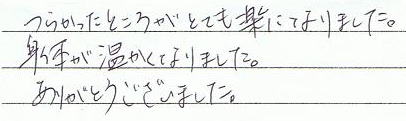 つらかったところがとても楽になりました。
身体が温かくなりました。
ありがとうございました。